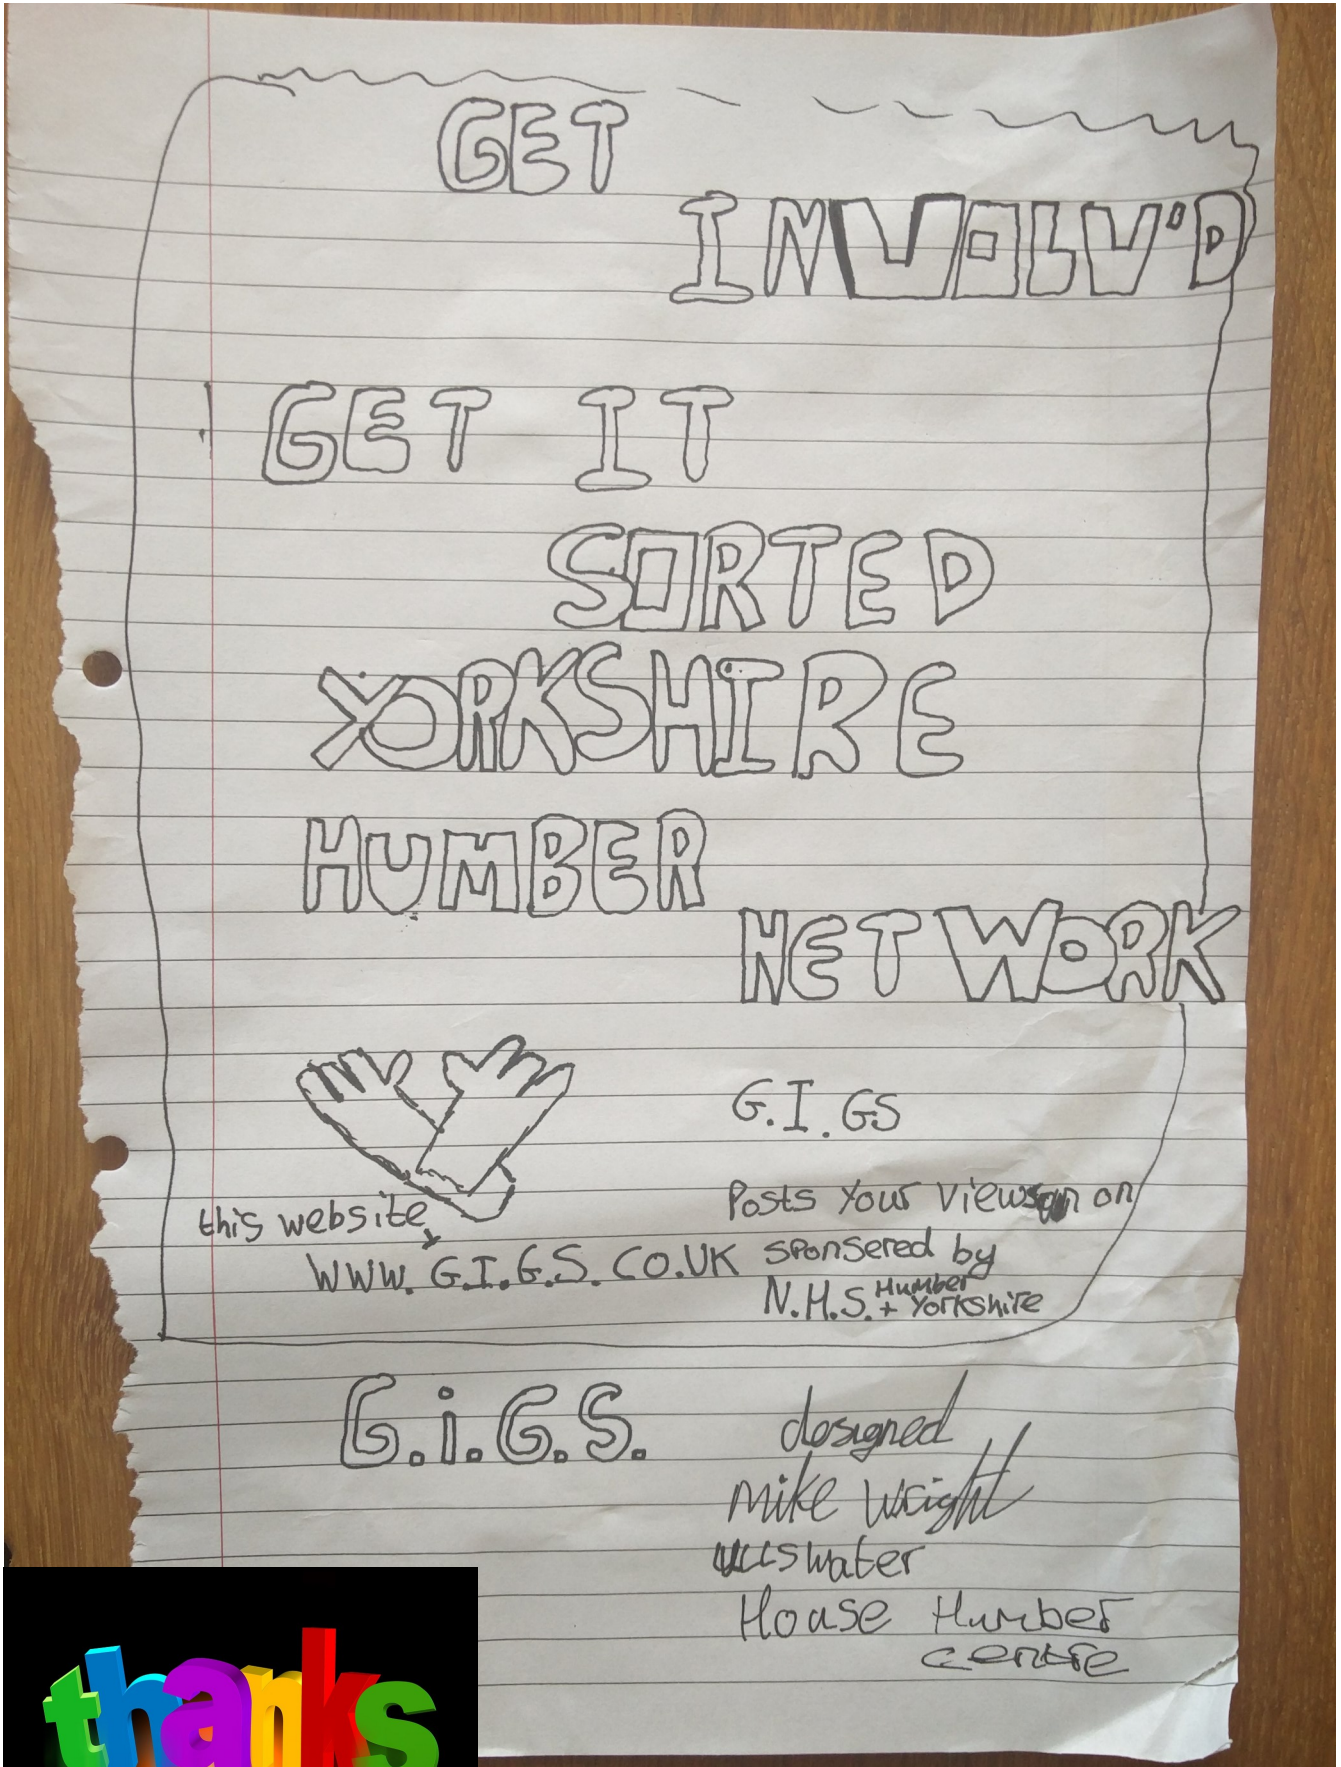 GET
INVOLV'D
GET IT
SORTED
YORKSHIRE
HUMBER
NETWORK
G.I.GS
Posts your views on
this website
www.G.I.G.S.CO.UK sponsered by
N.H.S. Humber
+ Yorkshire
G.i.G.S.
designed
mike wright
ullswater
House Humber
centre
thanks